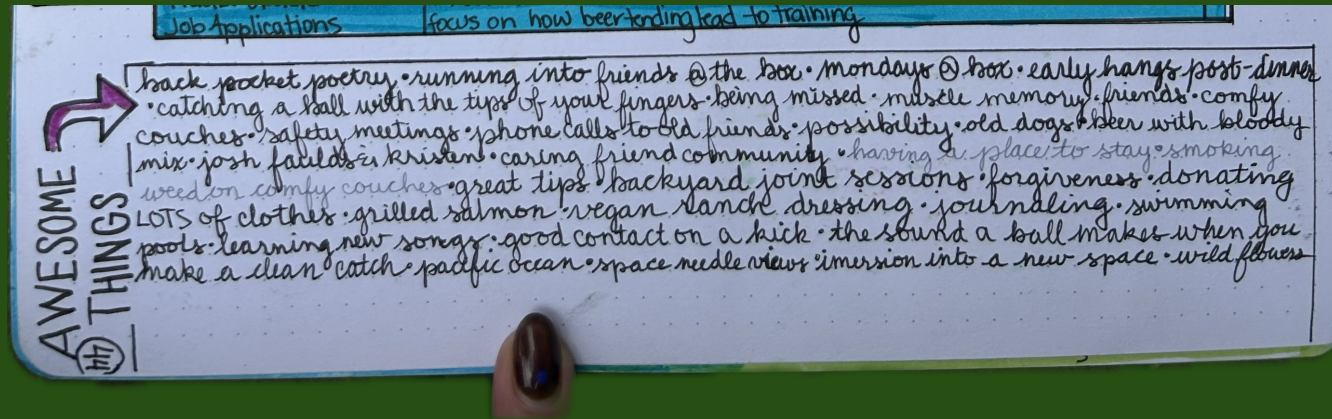 Job Applications focus on how beertending lead to training
AWESOME THINGS
44
back pocket poetry • running into friends @ the box • mondays @ box • early hangs post-dinner
• catching a ball with the tips of your fingers • being missed • muscle memory • friends • comfy
couches • safety meetings • phone calls to old friends • possibility • old dogs • beer with bloody
mix • josh faulds & kristen • caring friend community • having a place to stay • smoking
weed on comfy couches • great tips • backyard joint sessions • forgiveness • donating
LOTS of clothes • grilled salmon • vegan ranch dressing • journaling • swimming
pools • learning new songs • good contact on a kick • the sound a ball makes when you
make a clean catch • pacific ocean • space needle views • imersion into a new space • wild flowers